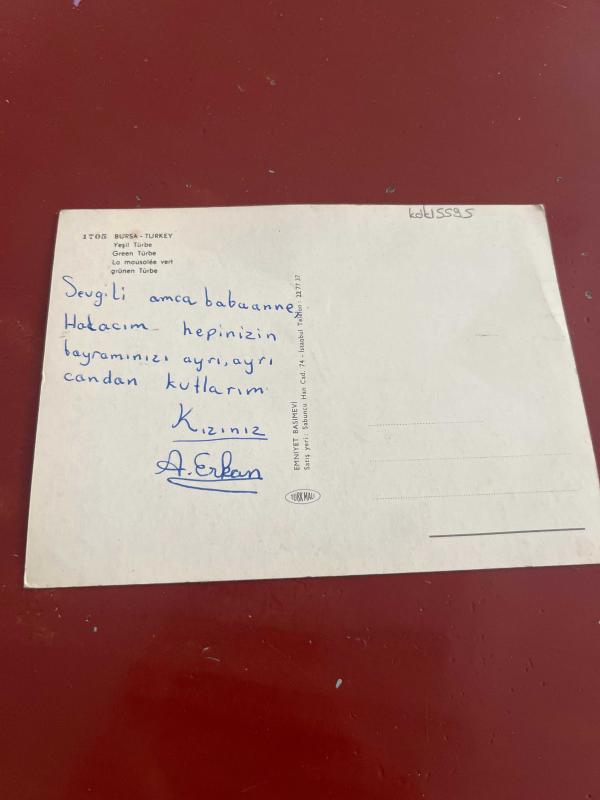 kdk15595
1705 BURSA - TURKEY
Yeşil Türbe
Green Türbe
La mausolée vert
grünen Türbe
Sevgili amca babaanne,
Halacım hepinizin
bayramınızı ayrı, ayrı
candan kutlarım
Kızınız
A. Erkan
EMNİYET BASIMEVİ
Satış yeri: Sabuncu Han Cad. 74 - İstanbul Telefon: 22 77 37
TÜRK MALI